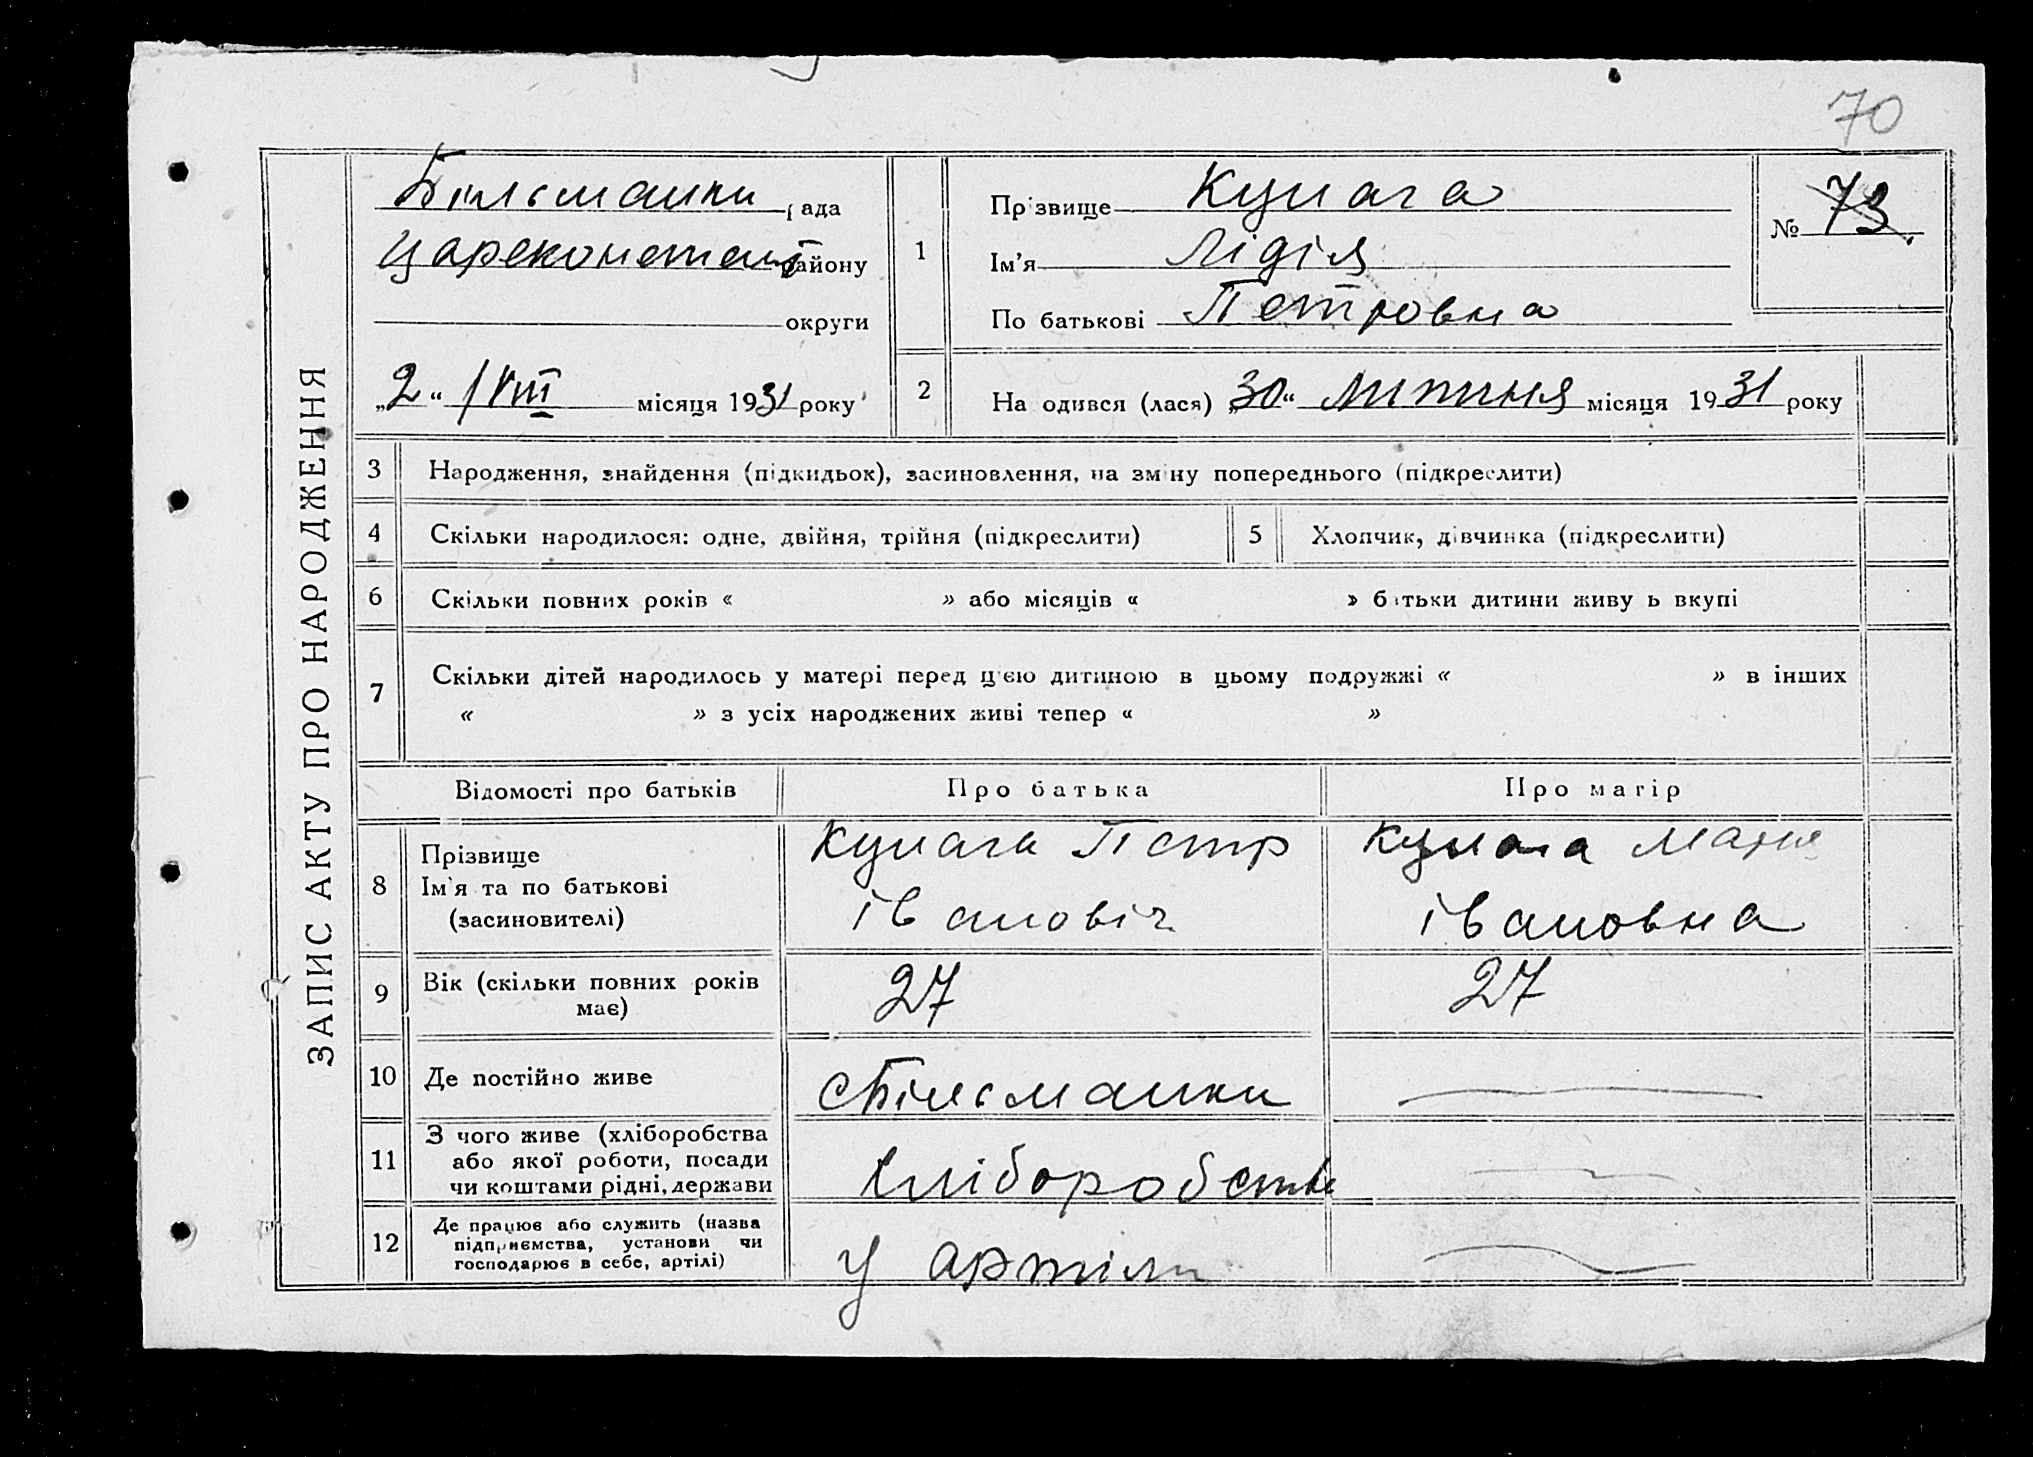 70
ЗАПИС АКТУ ПРО НАРОДЖЕННЯ
Більманки рада
Цареконстант району
округи
„2“ /VIII місяця 1931 року
1
Прізвище Кулага
Ім'я Лідія
По батькові Петровна
№ 73
2
На одився (лася) „30“ Липиня місяця 1931 року
3 Народження, знайдення (підкидьок), засиновлення, на зміну попереднього (підкреслити)
4 Скільки народилося: одне, двійня, трійня (підкреслити) 5 Хлопчик, дівчинка (підкреслити)
6 Скільки повних років « » або місяців « » батьки дитини живу ь вкупі
7 Скільки дітей народилось у матері перед цією дитиною в цьому подружжі « » в інших
« » з усіх народжених живі тепер « »
Відомості про батьків Про батька Про матір
8 Прізвище
Ім'я та по батькові
(засиновителі)
Кулага Петр
Івановіч
Кулага Марія
Івановна
9 Вік (скільки повних років
має)
27
27
10 Де постійно живе
с Більманки
11 З чого живе (хліборобства
або якої роботи, посади
чи коштами рідні, держави
Хліборобства
12 Де працює або служить (назва
підприємства, установи чи
господарює в себе, артілі)
У артілі